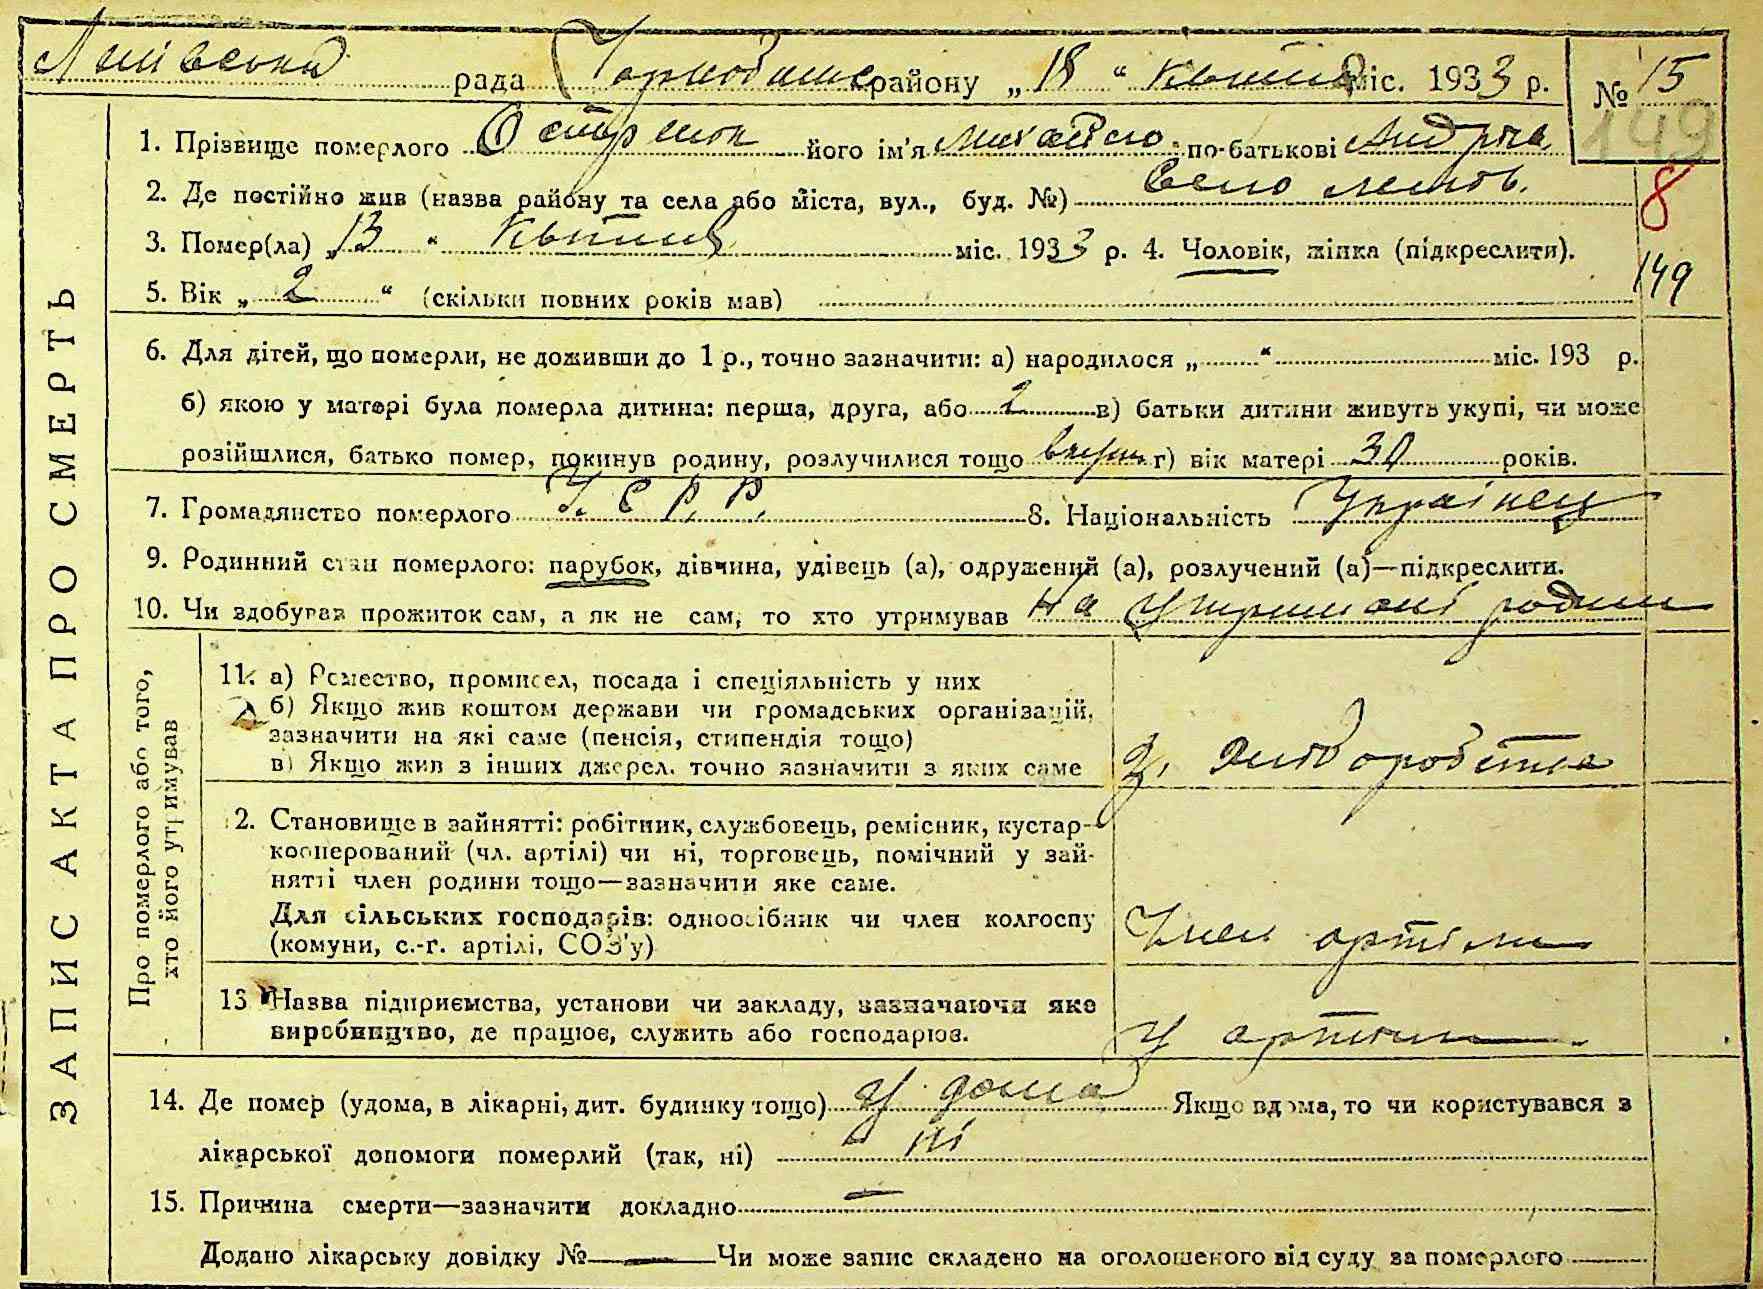 рада районy „18“ квітня міс. 1933 р. № 15
149
1. Прізвище померлого його ім'я Михайло по-батькові Андрієв.
2. Де постійно жив (назва району та села або міста, вул., буд. №) Село
8
3. Помер(ла) „13“ Квітня міс. 1933 р. 4. Чоловік, жінка (підкреслити).
149
5. Вік „2“ (скільки повних років мав)
6. Для дітей, що померли, не доживши до 1 р., точно зазначити: а) народилося „ “ міс. 193 р.
б) якою у матері була померла дитина: перша, друга, або 2 в) батьки дитини живуть укупі, чи може
розійшлися, батько помер, покинув родину, розлучилися тощо г) вік матері 30 років.
7. Громадянство померлого У. С. Р. Р. 8. Національність Українец
9. Родинний стан померлого: парубок, дівчина, удівець (а), одружений (а), розлучений (а)—підкреслити.
10. Чи здобував прожиток сам, а як не сам, то хто утримував На утриманні родини
ЗАПИС АКТА ПРО СМЕРТЬ
Про померлого або того,
хто його утримував
11. а) Ремество, промисел, посада і спеціяльність у них
б) Якщо жив коштом держави чи громадських організацій,
зазначити на які саме (пенсія, стипендія тощо)
в) Якщо жив з інших джерел, точно зазначити з яких саме
З хліборобства
2. Становище в зайнятті: робітник, службовець, ремісник, кустар-
кооперований (чл. артілі) чи ні, торговець, помічний у зай-
нятті член родини тощо—зазначити яке саме.
Для сільських господарів: одноосібник чи член колгоспу
(комуни, с.-г. артілі, СОЗ'у)
Член артіли
13 Назва підприємства, установи чи закладу, зазначаючи яке
виробництво, де працює, служить або господарює.
У артили
14. Де помер (удома, в лікарні, дит. будинку тощо) У дома Якщо вдома, то чи користувався з
лікарської допомоги померлий (так, ні) ні
15. Причина смерти—зазначити докладно —
Додано лікарську довідку №— Чи може запис складено на оголошеного від суду за померлого